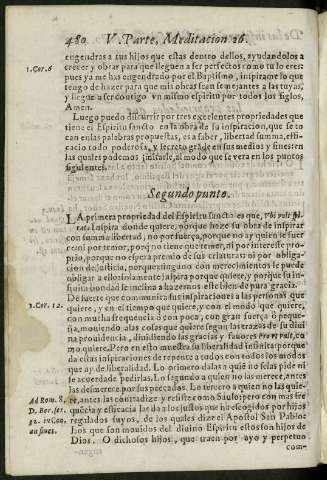 480 V. Parte, Meditacion 26.
engendras a tus hijos que estas dentro dellos, ayudandolos a
crecer y obrar para que lleguen a ser perfectos como tu lo eres:
1.Cor.6
pues ya me has engendrado por el Baptismo, inspirame lo que
tengo de hazer para que mis obras sean semejantes a las tuyas,
y llegue a ser contigo vn mismo espiritu por todos los siglos,
Amen.
Luego puedo discurrir por tres excelentes propriedades que
tiene el Espiritu sancto en la obra de su inspiracion, que se to
can en las palabras propuestas, es a saber, libertad summa, effi-
cacia todo poderosa, y secreto gráde en sus medios y fines en
las quales podemos imitarle, al modo que se vera en los puntos
siguientes.
Segundo punto.
LA primera propriedad del Espiritu sancto es que, Vbi vult spi
rat. Inspira donde quiere, porque haze su obra de inspirar
con summa libertad, no por fuerça, porque no ay quien le fuer
ce ni por temor, porq̃ no tiene que temer, ni por interesse pro-
prio, porque no espera premio de sus criaturas ni por obliga-
cion de justicia, porque ninguno con merecimientos le puede
obligar a ello: sino a todos inspira porque quiere, y porque su in-
finita bondad le inclina a hazernos este bien de pura gracia.
De suerte que communica sus inspiraciones a las personas que
1. Cor. 12.
quiere, y en el tiempo que quiere, y con el modo que quiere,
con mucha frequencia ò con poca, con gran fuerça ò peque-
ña, mouiendo a las cosas que quiere segun las trazas de su diui
na prouidencia, diuidiendo las gracias y fauores Prout vult, co
mo quiere. Pero en esto muestra su liberalidad infinita porque
da estas inspiraciones de repente a todos con todos los modos
que ay de liberalidad. Lo primero dalas a quiẽ no se las pide ni
le acorda de pedirlas. Lo segundo a quien no las merece, antes
las desmerece por sus peccados. Lo tercero a quien no las quie-
Ad Rom. 8.
re, antes las contradize y resiste como Saulo: pero con mas fre
D. Ber. ser.
quẽcia y efficacia las da a los justos que hã escogido por hijos
regalados suyos, de los quales dize el Apostol San Pablo:
Los que son mouidos del diuino Espiritu estos son hijos de
Dios. O dichosos hijos, que traen por ayo y perpetuo
com-